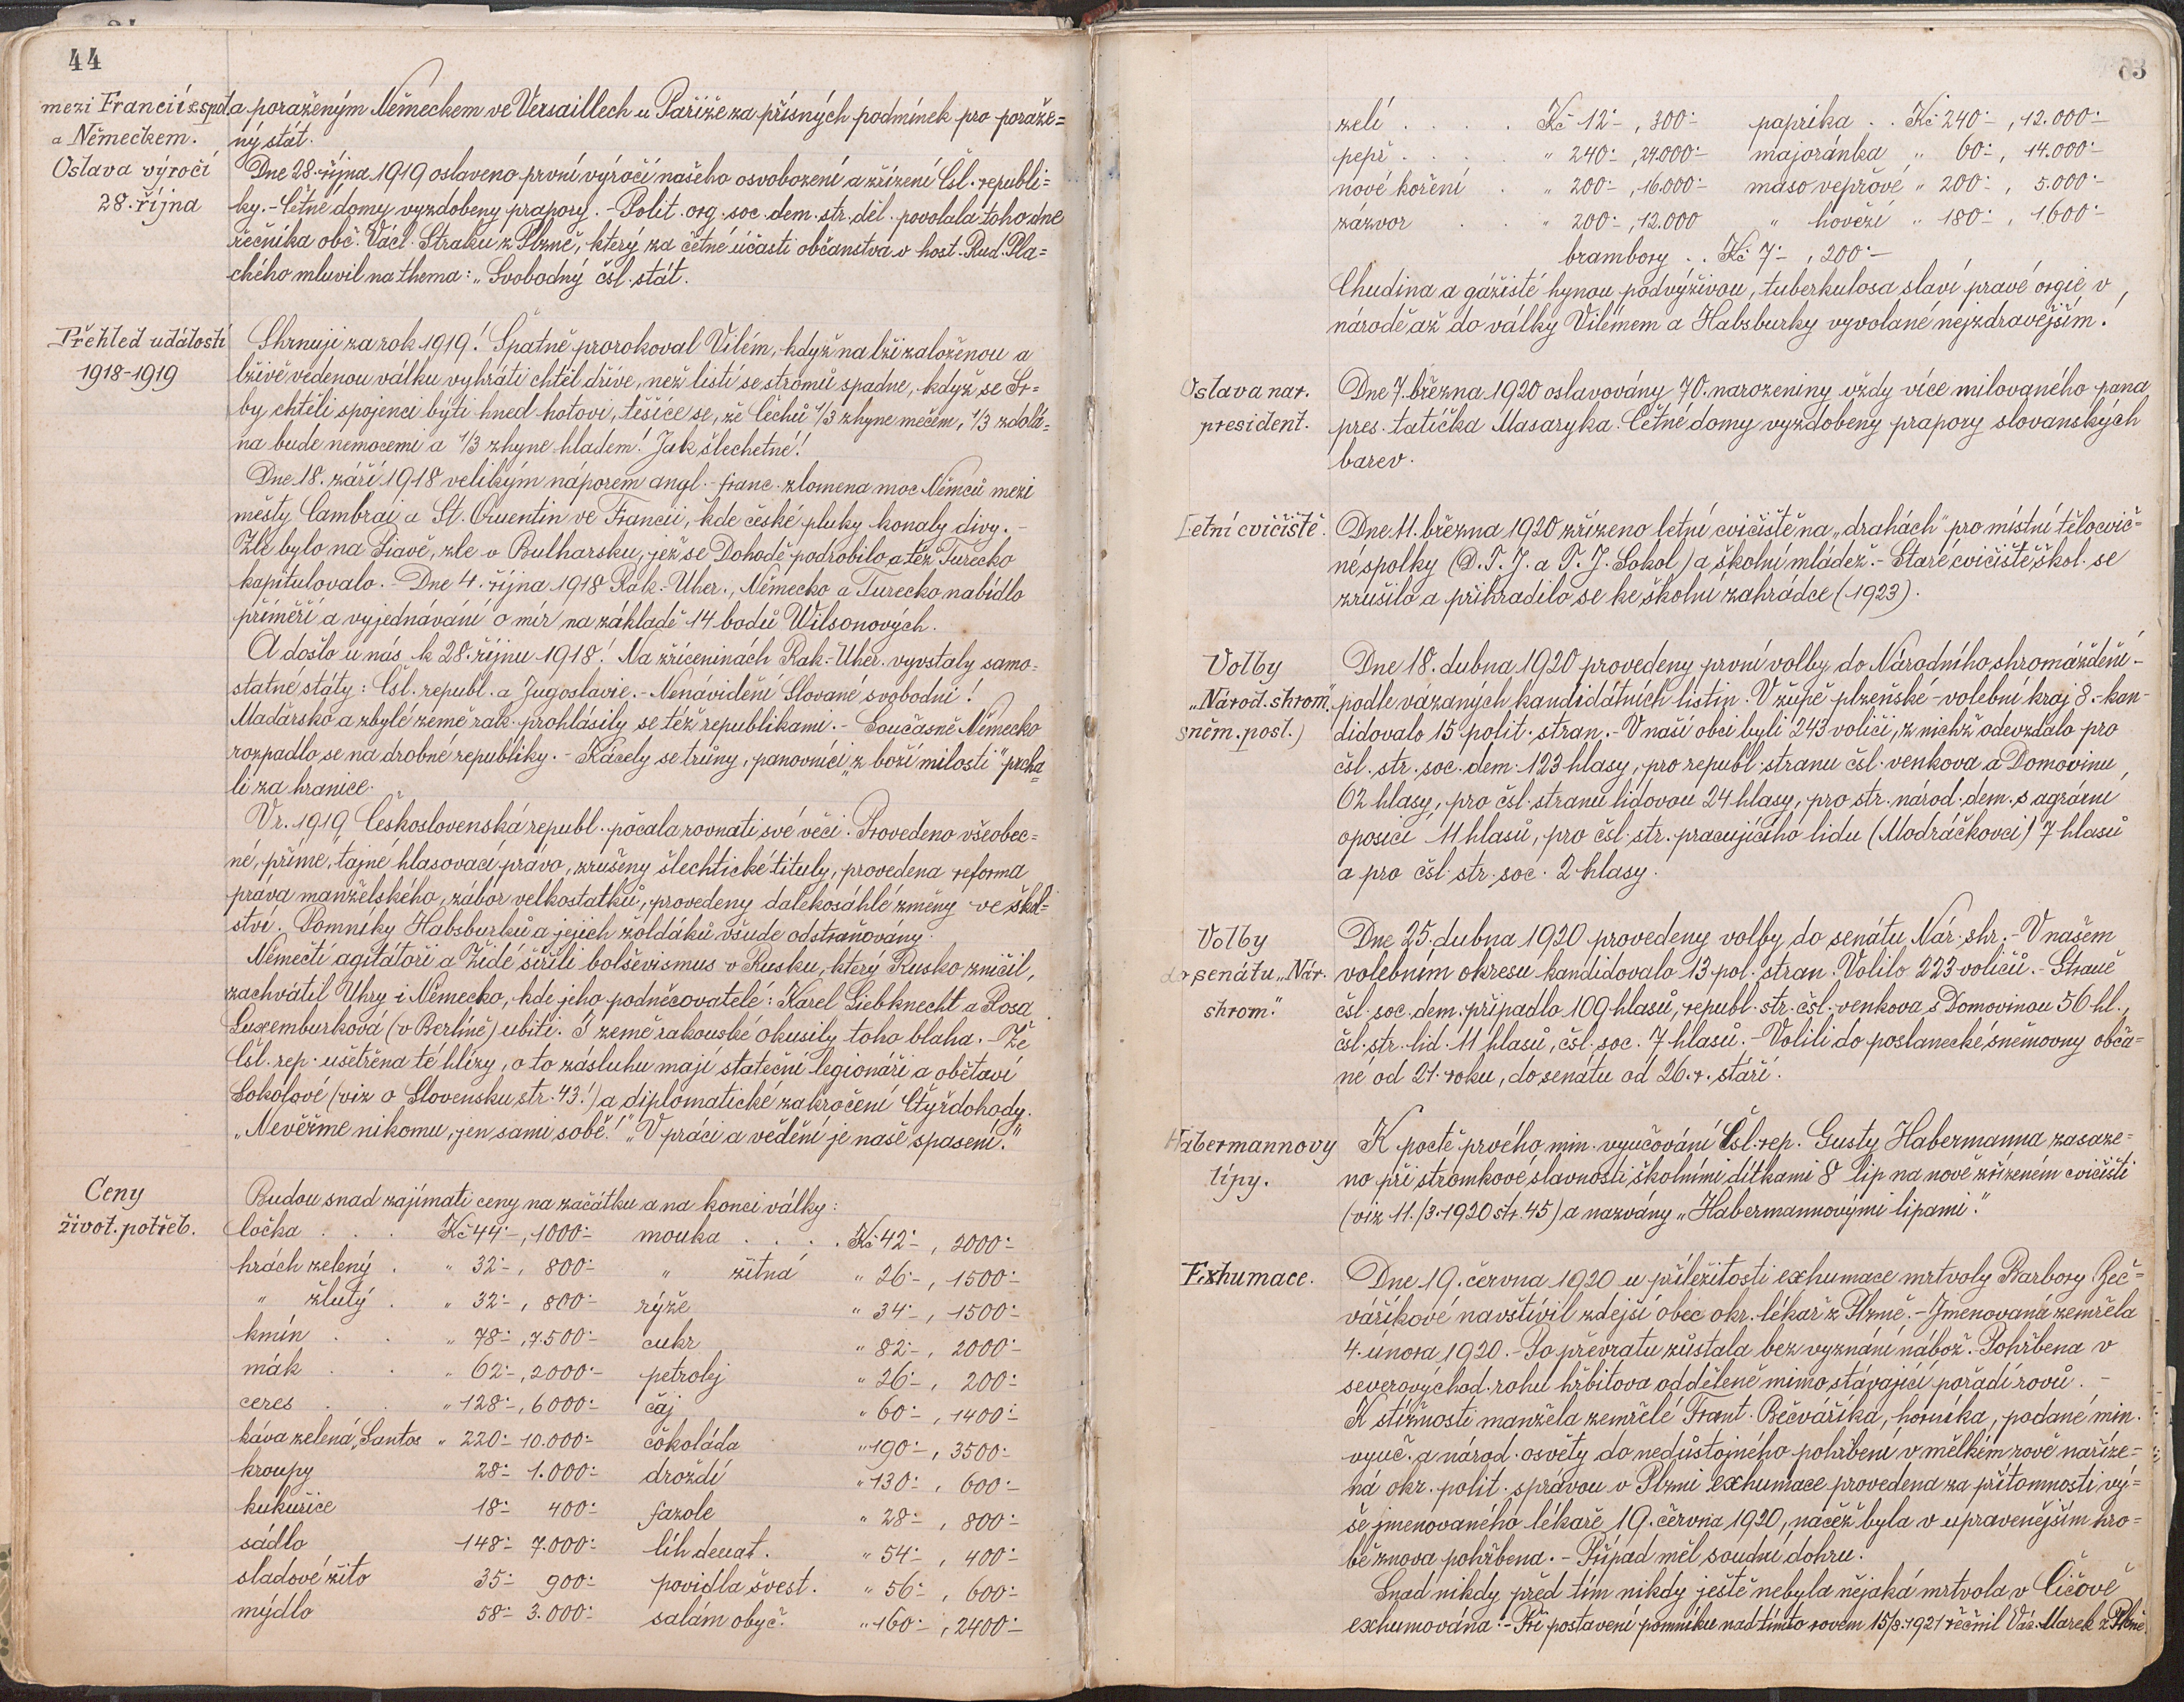 44
mezi Francií s spoj. a poraženým Německem ve Versaillech u Paříže za přísných podmínek pro poraže=
a Německem. ný stát.
Oslava výročí Dne 28. října 1919 oslaveno první výročí našeho osvobození a zřízení Čsl. republi=
28. října ky. - Četné domy vyzdobeny prapory. - Polit. org. soc. dem. str. děl. povolala toho dne
řečníka obč. Václ. Straku z Plzně, který za četné účasti občanstva v host. Rud. Pla=
chého mluvil na thema: „Svobodný čsl. stát.
Přehled událostí Shrnuji za rok 1919! Špatně prorokoval Vilém, když na lži založenou a
1918-1919 lživě vedenou válku vyhráti chtěl dříve, než listí se stromů spadne, když se Sr=
by chtěli spojenci býti hned hotovi, těšíce se, že Čechů 1/3 zhyne mečem, 1/3 zdolá=
na bude nemocemi a 1/3 zhyne hladem! Jak šlechetné!
Dne 18. září 1918 velikým náporem angl.-franc. zlomena moc Němců mezi
městy Cambrai a St. Quentin ve Francii, kde české pluky konaly divy. -
Zle bylo na Piavě, zle v Bulharsku, jež se Dohodě podrobilo a též Turecko
kapitulovalo. - Dne 4. října 1918 Rak.-Uher., Německo a Turecko nabídlo
příměří a vyjednávání o mír na základě 14 bodů Wilsonových.
A došlo u nás k 28. říjnu 1918! Na zříceninách Rak.-Uher. vyvstaly samo-
statné státy: Čsl. republ. a Jugoslavie. - Nenávidění Slované svobodni!
Maďarsko a zbylé země rak. prohlásily se též republikami. - Současně Německo
rozpadlo se na drobné republiky. - Kácely se trůny, panovníci „z boží milosti" prcha=
li za hranice.
V r. 1919 Československá republ. počala rovnati své věci. Provedeno všeobec=
né, přímé, tajné hlasovací právo, zrušeny šlechtické tituly, provedena reforma
práva manželského, zábor velkostatků, provedeny dalekosáhlé změny ve škol=
ství. Pomníky Habsburků a jejich žoldáků všude odstraňovány.
Němečtí agitátoři a Židé šířili bolševismus v Rusku, který Rusko zničil,
zachvátil Uhry i Německo, kde jeho podněcovatelé: Karel Liebknecht a Rosa
Luxemburková (v Berlíně) ubiti. I země rakouské okusily toho blaha. - Že
Čsl. rep. ušetřena té hlízy, o to zásluhu mají stateční legionáři a obětaví
Sokolové (viz o Slovensku str. 43!) a diplomatické zakročení Čtyřdohody.
„Nevěřme nikomu, jen sami sobě!" „V práci a vědění je naše spasení."
Ceny Budou snad zajímati ceny na začátku a na konci války:
život. potřeb. čočka . . . Kč 44·-, 1000·- mouka . . . . Kč 42·-, 2000·-
hrách zelený . " 32·-, 800·- " žitná " 26·-, 1500·-
" žlutý . " 32·-, 800·- rýže " 34·-, 1500·-
kmín . . " 78·-, 7.500·- cukr " 82·-, 2000·-
mák . . " 62·-, 2000·- petrolej " 26·-, 200·-
ceres . . " 128·-, 6000·- čaj " 60·-, 1400·-
káva zelená, Santos " 220·- 10.000·- čokoláda " 190·-, 3500·-
kroupy 28·- 1.000·- droždí " 130·-, 600·-
kukuřice 18·- 400·- fazole " 28·-, 800·-
sádlo 148·- 7.000·- líh denat. " 54·-, 400·-
sladové žito 35·- 900·- povidla švest. " 56·-, 600·-
mýdlo 58·- 3.000·- salám obyč. " 160·-, 2400·-
zelí . . . . Kč 12·-, 300·- paprika . . Kč 240·-, 12.000·-
pepř . . . . " 240·-, 24.000·- majoránka " 60·-, 14.000·-
nové koření . " 200·-, 16.000·- maso vepřové " 200·-, 5.000·-
zázvor . . " 200·-, 12.000 " hovězí " 180·-, 1.600·-
brambory . . Kč 7·-, 200·-
Chudina a gážisté hynou podvýživou, tuberkulosa slaví pravé orgie v
národě až do války Vilémem a Habsburky vyvolané nejzdravějším!
Oslava nar. Dne 7. března 1920 oslavovány 70. narozeniny vždy více milovaného pana
president. pres. tatíčka Masaryka. Četné domy vyzdobeny prapory slovanských
barev.
Letní cvičiště. Dne 11. března 1920 zřízeno letní cvičiště na „drahách" pro místní tělocvič=
né spolky (D. T. J. a T. J. Sokol) a školní mládež. - Staré cvičiště škol. se
zrušilo a přihradilo se ke školní zahrádce (1923).
Volby Dne 18. dubna 1920 provedeny první volby do Národního shromáždění -
„Národ. shrom." podle vázaných kandidátních listin. V župě plzeňské - volební kraj 8. - kan-
sněm. posl.) didovalo 15 polit. stran. - V naší obci byli 243 voliči, z nichž odevzdalo pro
čsl. str. soc. dem. 123 hlasy, pro republ. stranu čsl. venkova a Domovinu
62 hlasy, pro čsl. stranu lidovou 24 hlasy, pro str. národ. dem. s agrární
oposicí 11 hlasů, pro čsl. str. pracujícího lidu (Modráčkovci) 7 hlasů
a pro čsl. str. soc. 2 hlasy.
Volby Dne 25. dubna 1920 provedeny volby do senátu Nár. shr. - V našem
do senátu „Nár. volebním okresu kandidovalo 13 pol. stran. Volilo 223 voličů. - Straně
shrom." čsl. soc. dem. připadlo 109 hlasů, republ. str. čsl. venkova s Domovinou 56 hl.,
čsl. str. lid. 11 hlasů, čsl. soc. 7 hlasů. - Volili do poslanecké sněmovny obča=
né od 21. roku, do senátu od 26. r. stáří.
Habermannovy K poctě prvého min. vyučování Čsl. rep. Gusty Habermanna zasaze=
lípy. no při stromkové slavnosti školními dítkami 8 lip na nově zřízeném cvičišti
(viz 11./3. 1920 str. 45) a nazvány „Habermannovými lipami".
Exhumace. Dne 19. června 1920 u příležitosti exhumace mrtvoly Barbory Beč=
váříkové navštívil zdejší obec okr. lékař z Plzně. - Jmenovaná zemřela
4. února 1920. - Po převratu zůstala bez vyznání nábož. Pohřbena v
severovýchod. rohu hřbitova odděleně mimo stávající pořadí rovů. -
K stížnosti manžela zemřelé Frant. Bečváříka, horníka, podané min.
vyuč. a národ. osvěty do nedůstojného pohřbení v mělkém rově naříze=
ná okr. polit. správou v Plzni exhumace provedena za přítomnosti vý=
še jmenovaného lékaře 19. června 1920, načež byla v upravenějším hro=
bě znova pohřbena. - Případ měl soudní dohru.
Snad nikdy před tím nikdy ještě nebyla nějaká mrtvola v Líčově
exhumována. - Při postavení pomníku nad tímto rovem 15/8. 1921 řečnil Vác. Marek z Plzně.